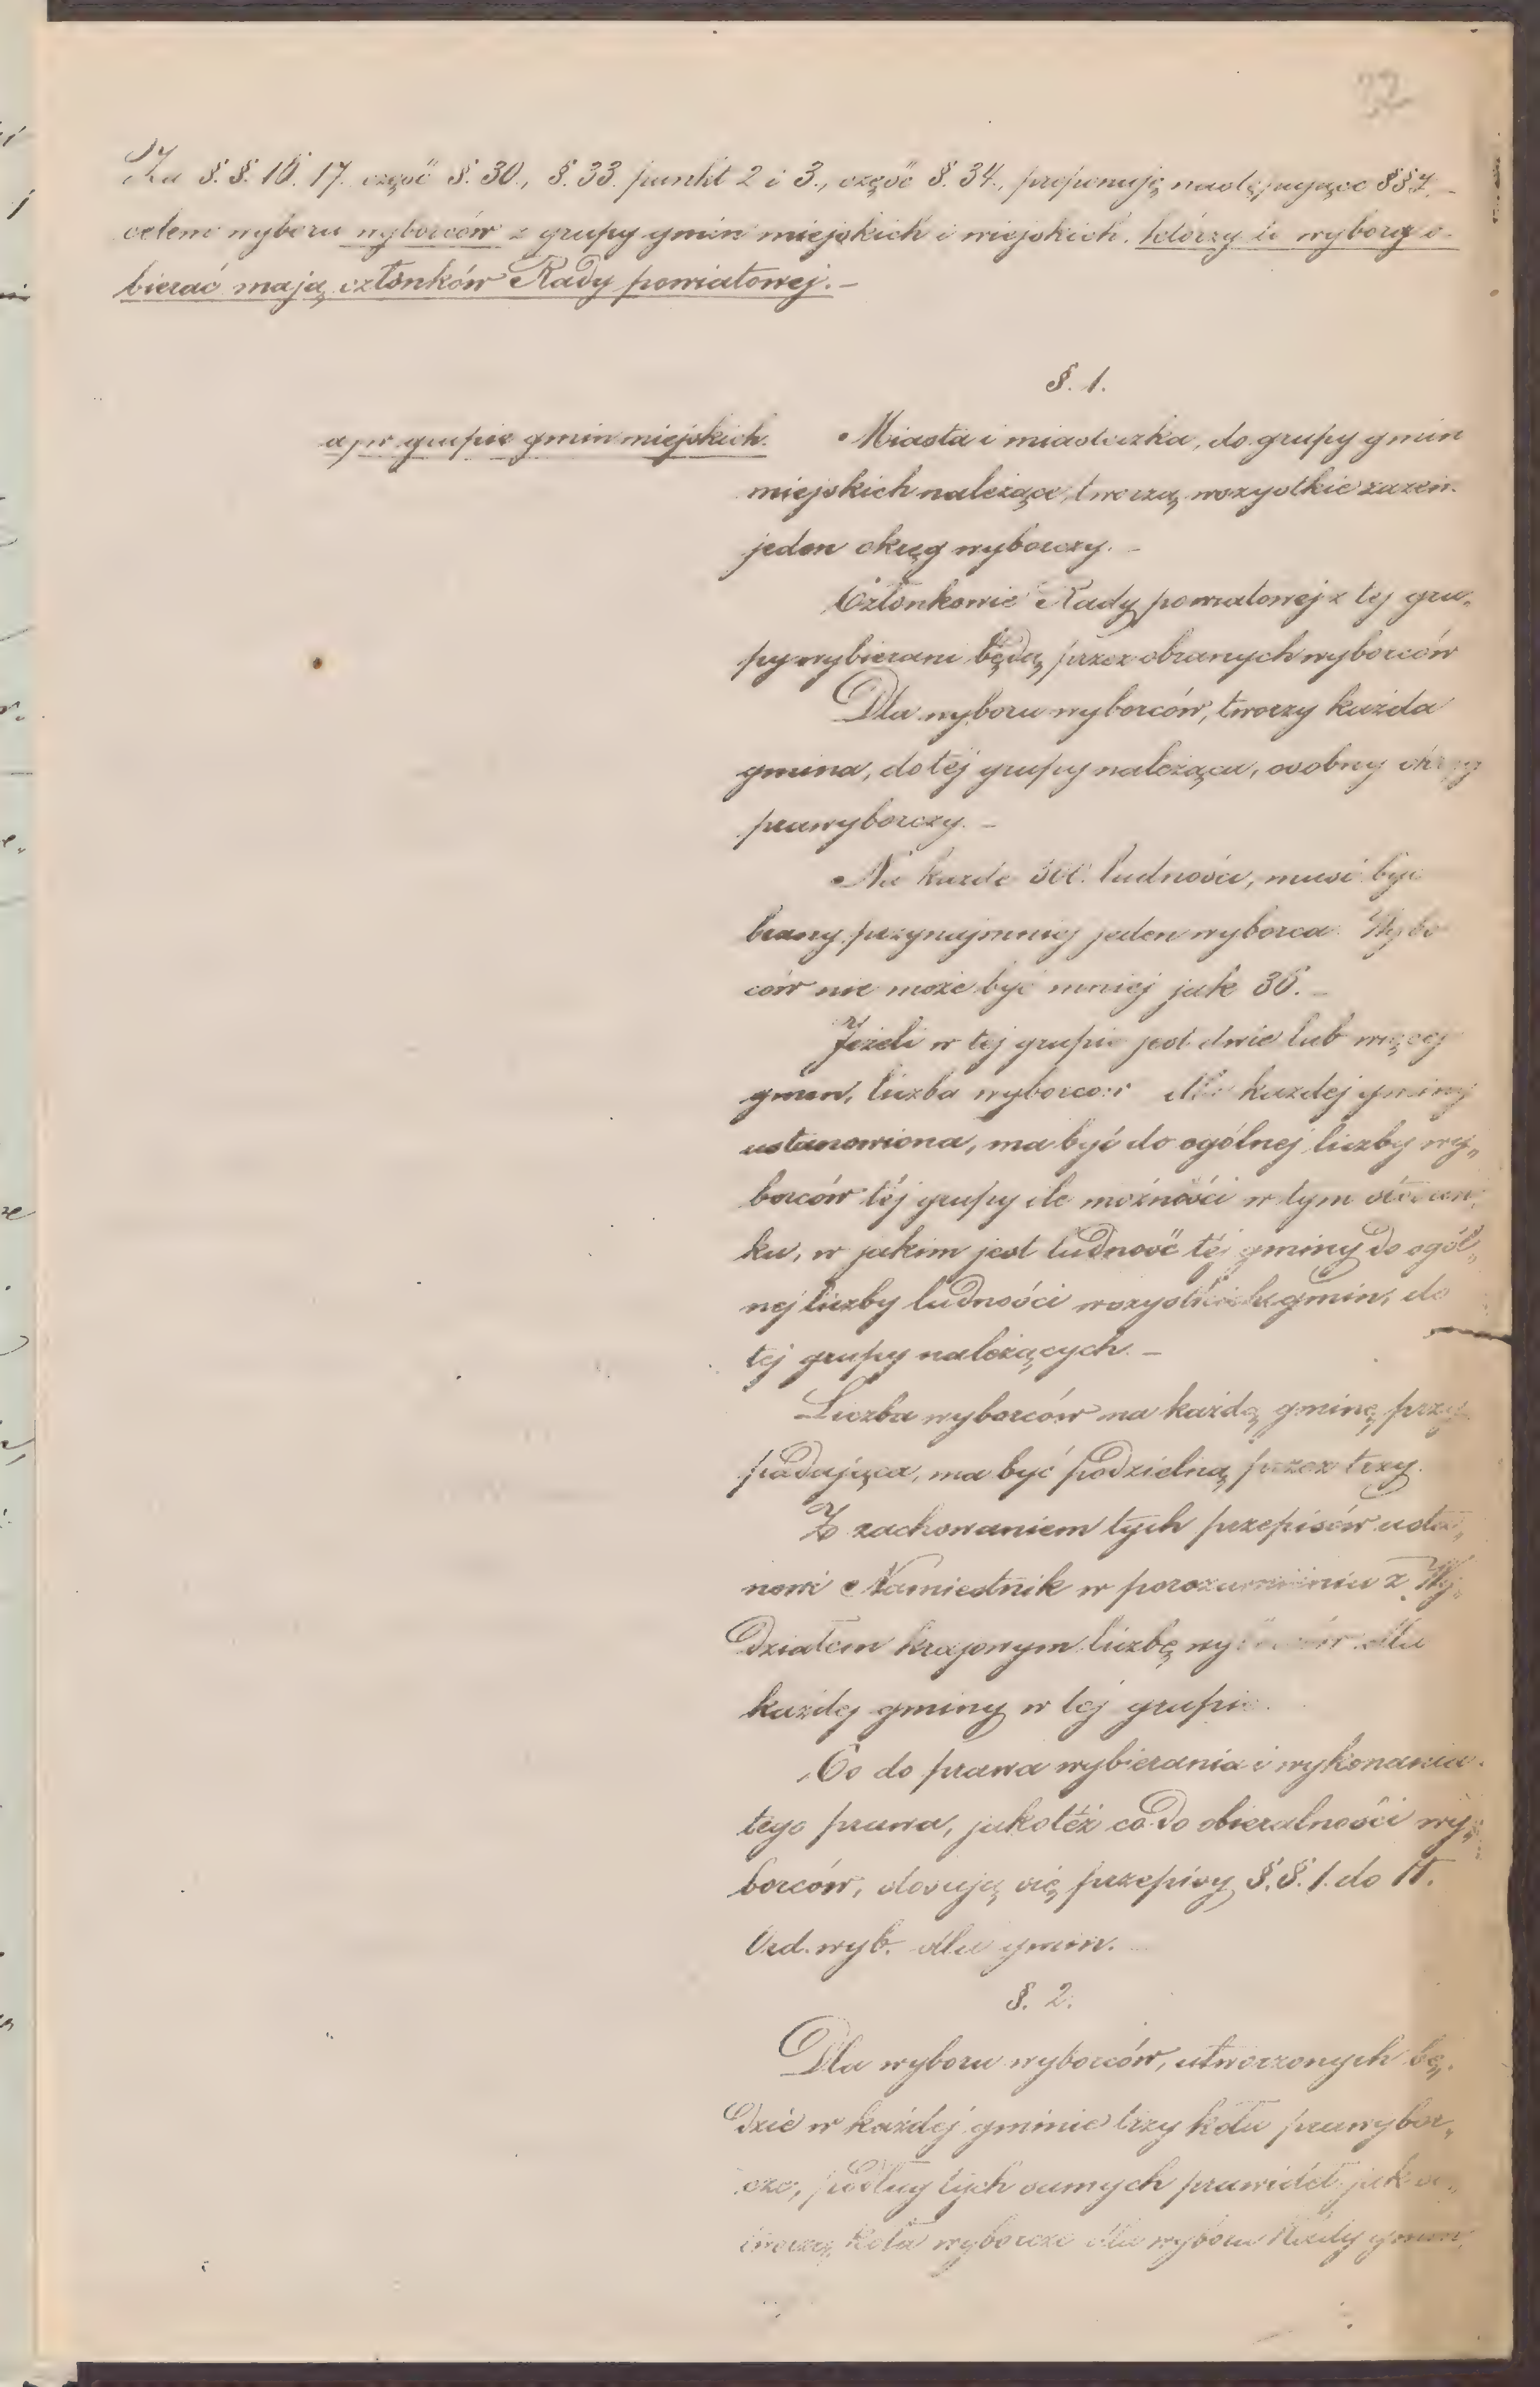 22
Za §. §. 16. 17. część §. 30., §. 33. punkt 2 i 3., część §. 34., proponuję następujące §§
celem wyboru wyborców z grupy gmin miejskich i wiejskich, którzy to wyborcy o-
bierać mają członków Rady powiatowej. –
§. 1.
a, w grupie gmin miejskich.
Miasta i miasteczka, do grupy gmin
miejskich należące, tworzą wszystkie razem
jeden okręg wyborczy. –
Członkowie Rady powiatowej z tej gru„
py wybierani będą przez obranych wyborców
Dla wyboru wyborców, tworzy każda
gmina, do tej grupy należąca, osobny okręg
prawyborczy. –
Na każde 300. ludności, musi być
brany przynajmniej jeden wyborca. Wybo
ców nie może być mniej jak 36. –
Jeżeli w tej grupie jest dwie lub więcej
gmin, liczba wyborców dla każdej gminy
ustanowiona, ma być do ogólnej liczby wy„
borców téj grupy ile możności w tym stosun„
ku, w jakim jest ludność téj gminy do ogól„
nej liczby ludności wszystkich gmin, do
tej grupy należących. –
Liczba wyborców na każdą gminę przy
padająca, ma być podzielną przez trzy.
Z zachowaniem tych przepisów usta„
nowi Namiestnik w porozumieniu z Wy„
działem krajowym liczbę wyborców dla
każdej gminy w tej grupie.
Co do prawa wybierania i wykonania
tego prawa, jakoteż co do obieralności wy„
borców, stosują się przepisy §. §. 1. do 11.
Ord. wyb. dla gmin.
§. 2.
Dla wyboru wyborców, utworzonych bę„
dzie w każdej gminie trzy koła prawybor„
cze, podług tych samych prawideł jak
tworzą koła wyborcze dla wyboru Rady gminn